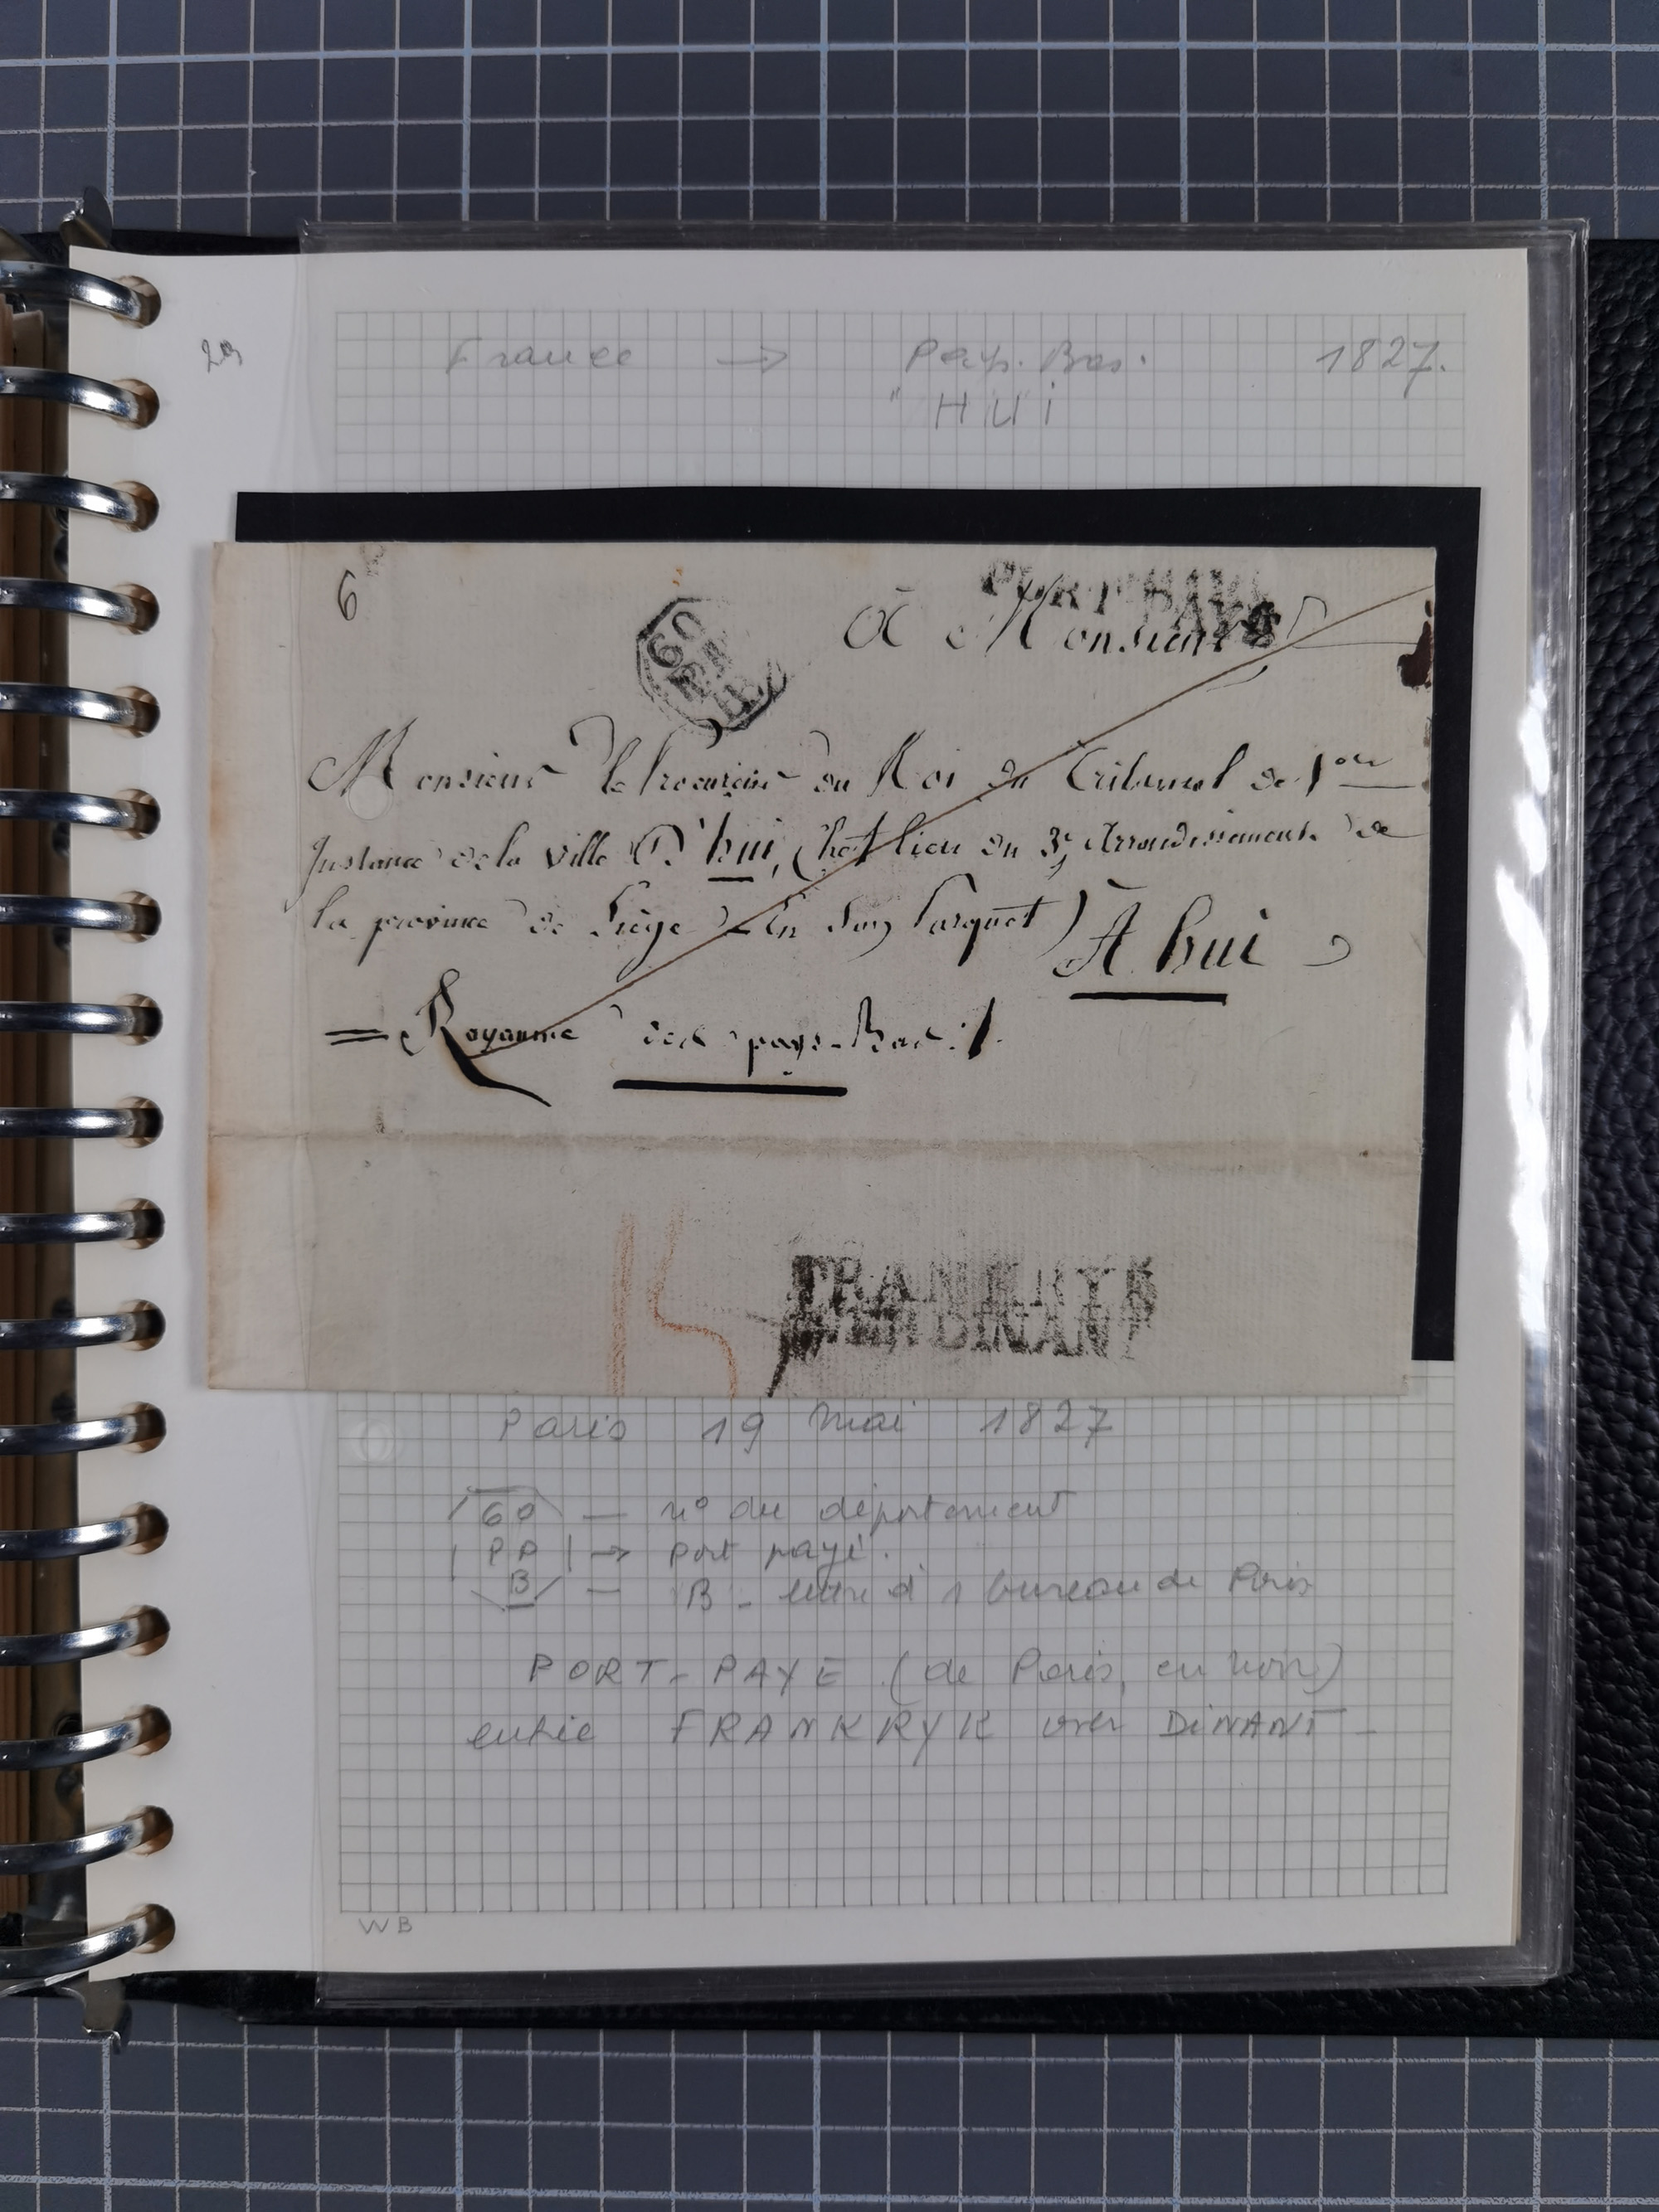 29
France → Pays. Bas. 1827.
" HUi
6
PORT PAYÉ
60
PP
B
A Monsieur
Monsieur le Procureur du Roi du Tribunal de 1ere
Instance de la ville D'hui, Chef lieu du 3e Arrondissement de
la province de Liège = En Son Parquet) A hui
= Royaume des pays-Bas ./.
FRANKRYK
OVER DINANT
Paris 19 Mai 1827
60 — n° du département
PP → Port payé.
B — B - lettre d' 1 bureau de Paris
PORT-PAYE (de Paris, en noir)
entrée FRANKRYK over DiNANT -
WB